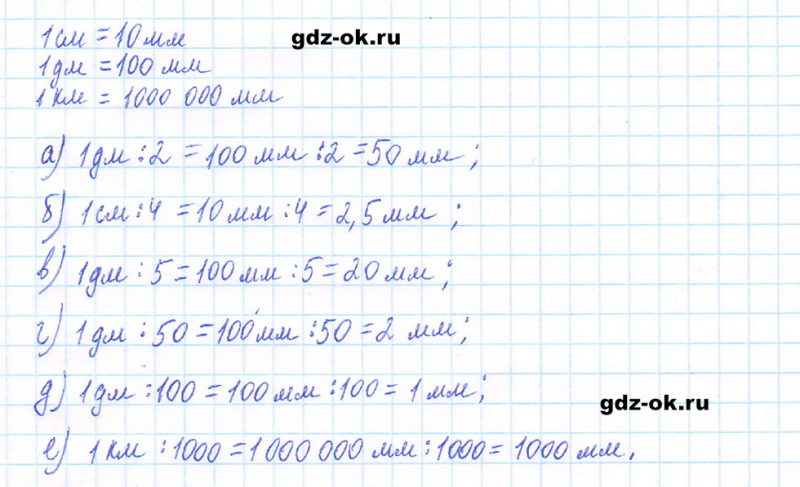 1см = 10 мм
gdz-ok.ru
1дм = 100 мм
1 км = 1000 000 мм
а) 1дм : 2 = 100 мм : 2 = 50 мм ;
б) 1см : 4 = 10 мм : 4 = 2,5 мм ;
в) 1дм : 5 = 100 мм : 5 = 20 мм ;
г) 1 дм : 50 = 100 мм : 50 = 2 мм ;
д) 1дм : 100 = 100 мм : 100 = 1 мм ;
gdz-ok.ru
е) 1 км : 1000 = 1000 000 мм : 1000 = 1000 мм.